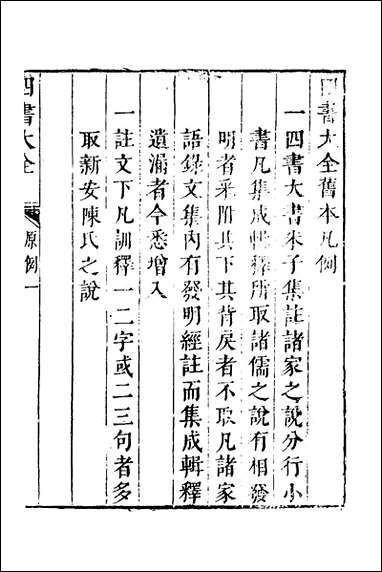 四書大全舊本凡例
一四書大書朱子集註諸家之說分行小
書凡集成輯釋所取諸儒之說有相發
明者采附其下其背戾者不取凡諸家
語錄文集內有發明經註而集成輯釋
遺漏者今悉增入
一註文下凡訓釋一二字或二三句者多
取新安陳氏之說
四書大全
原例一